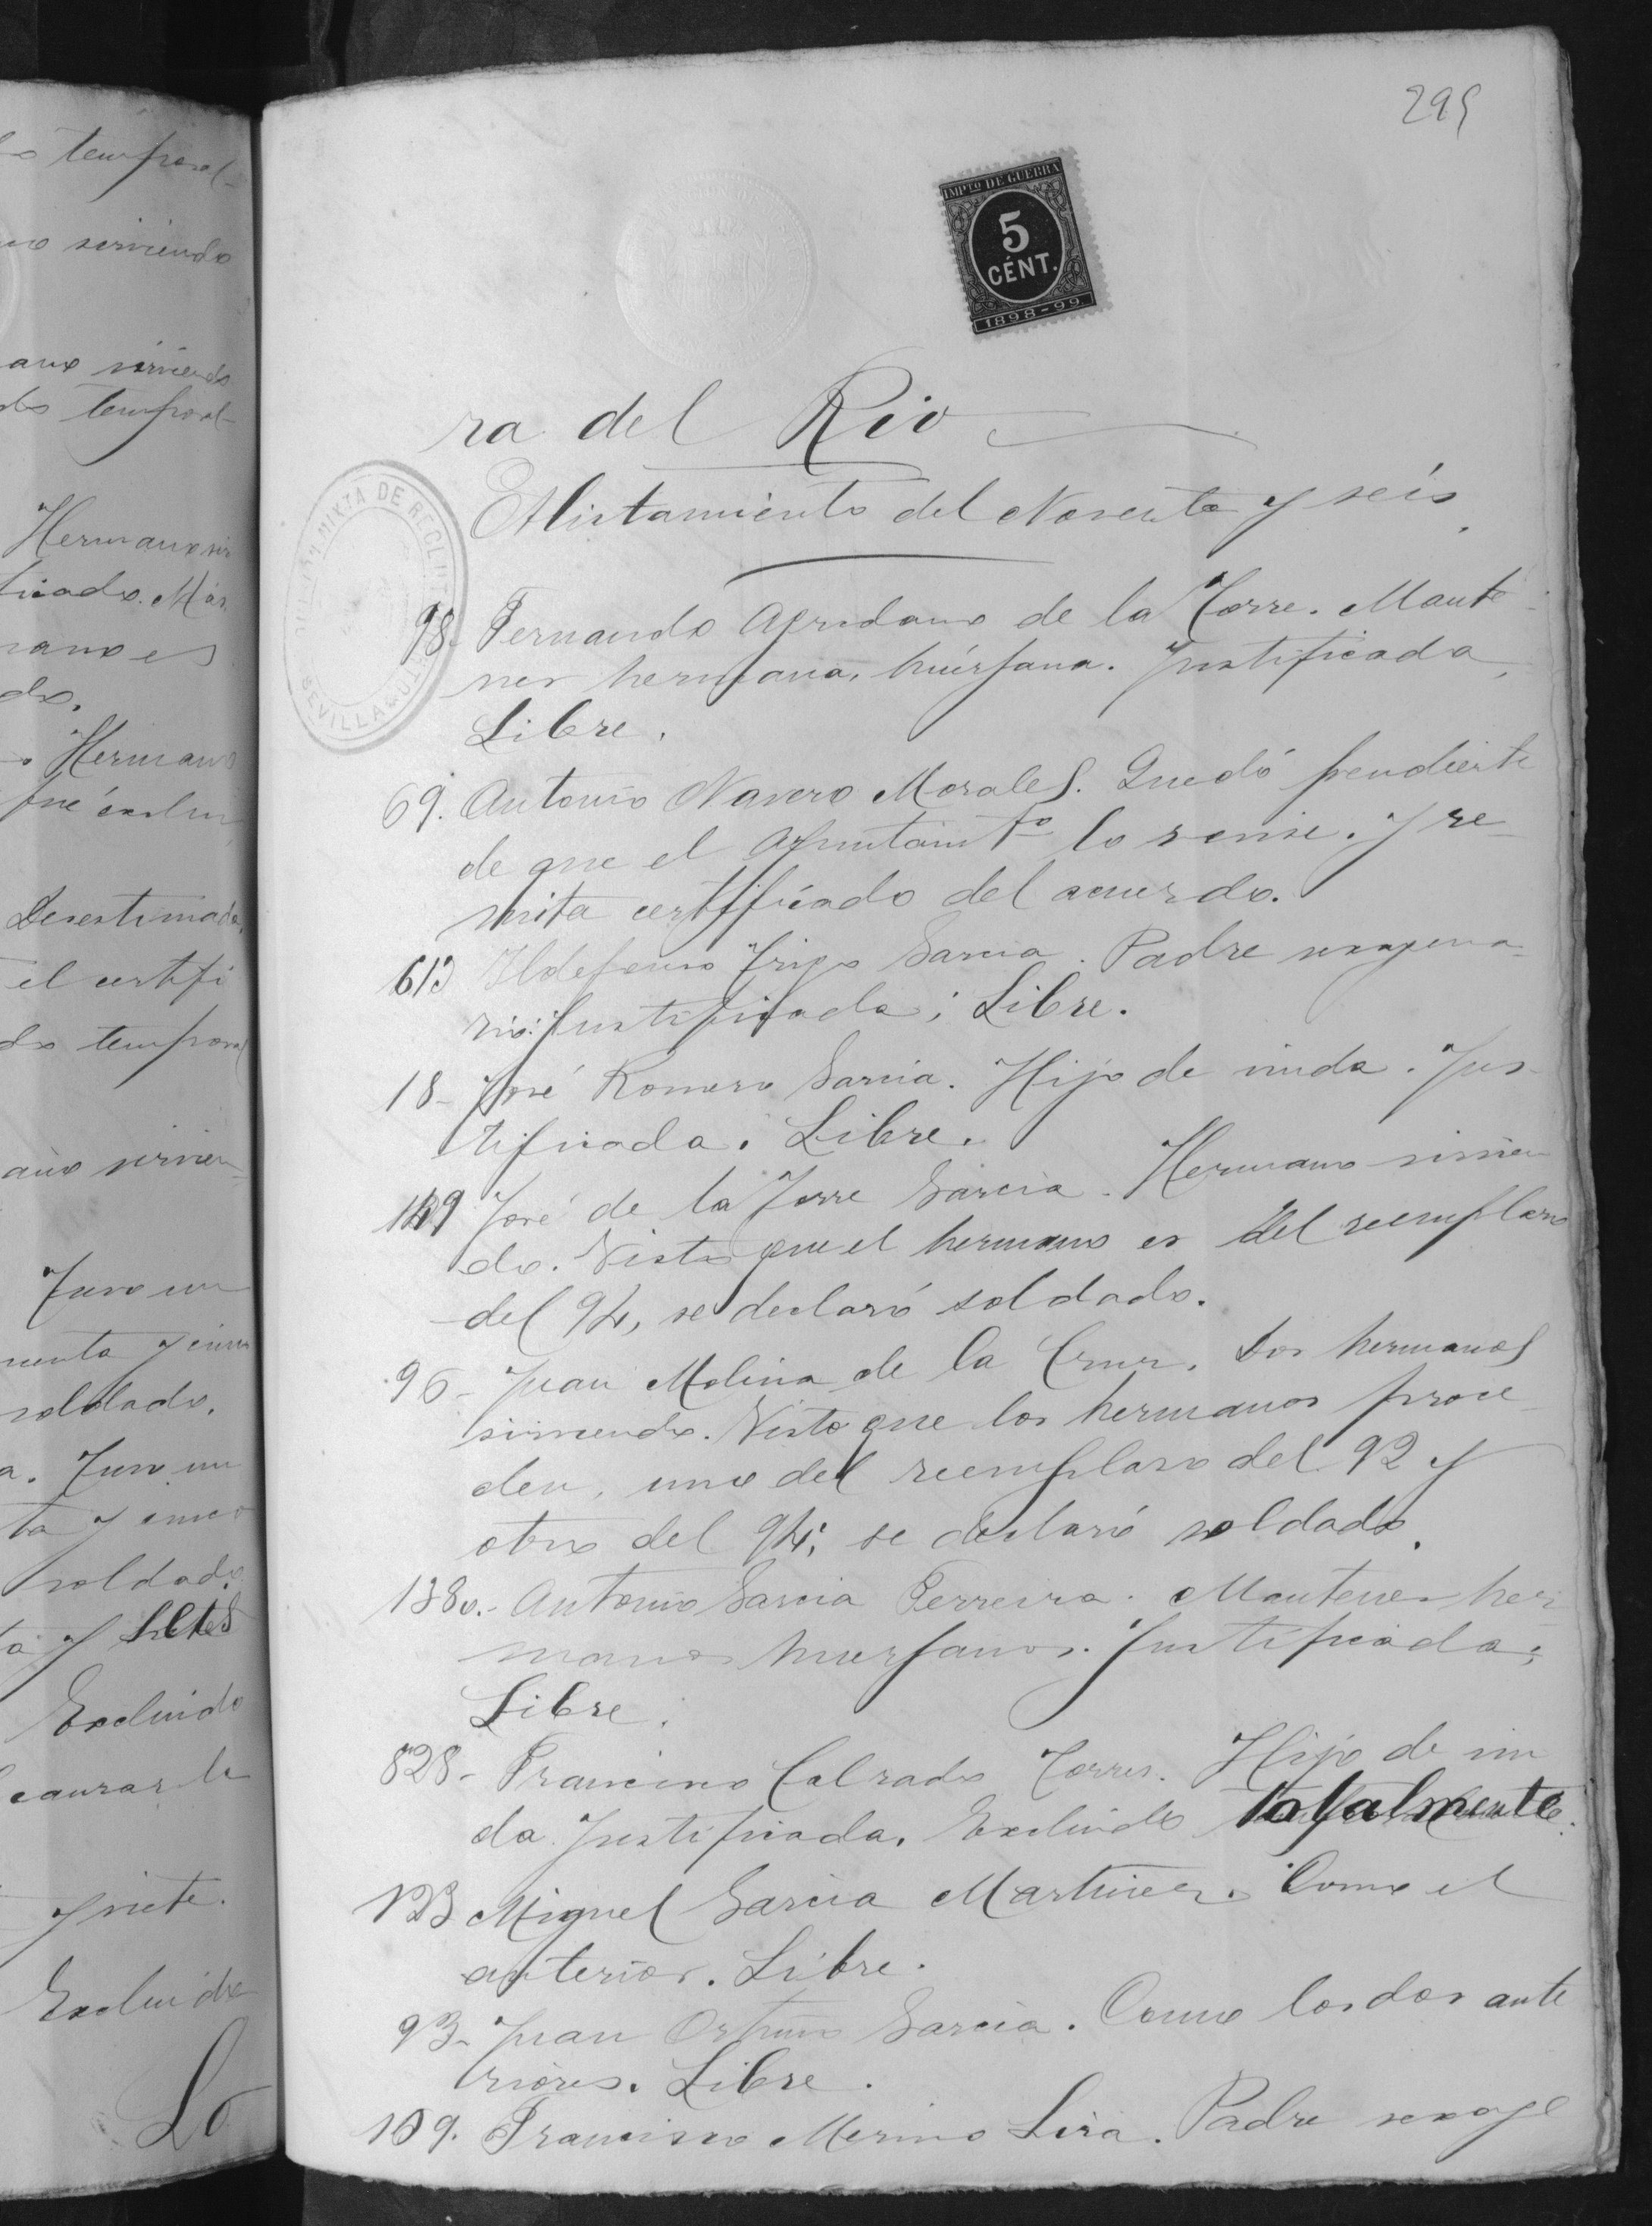 295
IMPTO DE GUERRA
5
CÉNT.
1898-99.
ra del Rio
Alistamiento del Noventa y seis
MIXTA DE RECLU
SEVILLA
98. Fernando Agredano de la Torre. Mante-
ner hermana huérfana. Justificada,
Libre.
69. Antonio Navero Morales. Quedó pendiente
de que el Ayuntamto lo revise y re
mita certificado del acuerdo.
613 Ildefonso Trigo Garcia. Padre sexagena-
rio. Justificada; Libre.
18- José Romero Garcia. Hijo de viuda. Jus-
tificada. Libre.
149 José de la Torre Garcia. Hermano sirvien
do. Visto que el hermano es del reemplazo
del 94, se declaró soldado.
96- Juan Molina de la Cruz. Dos hermanos
sirviendo. Visto que los hermanos proce
den, uno del reemplazo del 92 y
otro del 94; se declaró soldado.
138 Antonio Garcia Ferreira. Mantener her
manos huerfanos. Justificada;
Libre.
828- Francisco Calzado Torres. Hijo de viu
da. Justificada. Excluido totalmente.
123 Miguel Garcia Martinez. Como el
anterior. Libre.
93- Juan Ortuno Garcia. Como los dos ante
riores. Libre.
109. Francisco Merino Lira. Padre sexage
temporal-
sirviendo
sirviendo
temporal-
Hermano sir
ficado. Mas
mano es
do.
Hermano
fué exclui
Desestimada,
el certifi
do temporal
sirvien-
Tuvo un
y cinco
soldado.
Tuvo un
ta y cinco
soldado.
Excluido
causar la
y siete.
Excluido
Lo